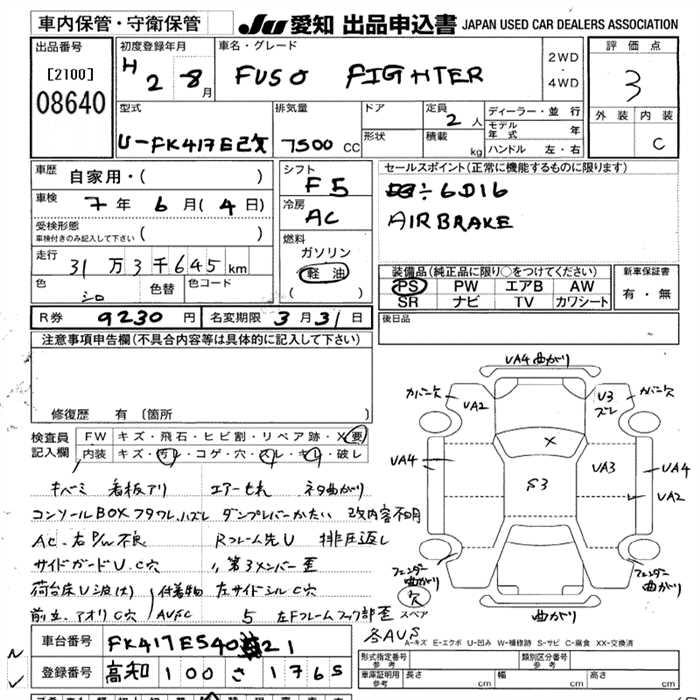 車内保管・守衛保管 JU 愛知 出品申込書 JAPAN USED CAR DEALERS ASSOCIATION
出品番号 [2100] 08640
初度登録年月 H 2 - 8 月
車名・グレード FUSO FIGHTER
2WD ・ 4WD
評価点 3
外装 内装 C
型式 U-FK417E改
排気量 7500 CC
ドア
形状
定員 2 人
積載 kg
ディーラー・並行
モデル年式 年
ハンドル 左・右
車歴 自家用・( )
車検 7 年 6 月 ( 4 日)
受検形態 ( )
車検付きのみ記入して下さい
走行 31 万 3 千 645 km
色 シロ 色替 色コード
シフト F5
冷房 AC
燃料 ガソリン 軽油 ( )
セールスポイント(正常に機能するものに限ります)
6D16
AIR BRAKE
装備品(純正品に限り○をつけてください)
PS PW エアB AW
SR ナビ TV カワシート
新車保証書
有・無
R券 9230 円 名変期限 3月31日
後日品
注意事項申告欄(不具合内容等は具体的に記入して下さい)
修復歴 有 (箇所 )
検査員記入欄
FW キズ・飛石・ヒビ割・リペア跡・X要
内装 キズ・汚レ・コゲ・穴・スレ・キレ・破レ
キバミ 看板アリ エアーもれ ネタ曲がり
コンソールBOXフタワレ,ハズレ ダンプレバーかたい 改内容不明
AC、右P/W不良 Rフレーム先U 排圧返し
サイドガードU、C穴 〃第3メンバー歪
荷台床U波(大) 付着物 左サイドシルC穴
前立、アオリC穴 AUSC 5 左Fフレームフック部歪
各AUS
VA4 曲がり
カバー欠 VA2 V3 ズレ カバー欠
X
VA4 S3 VA3 VA4
VA2
フェンダー曲がり 欠 スペア 曲がり フェンダー曲がり
A-キズ E-エクボ U-凹み W-補修跡 S-サビ C-腐食 XX-交換済
車台番号 FK417E540 21
登録番号 高知 100 さ 1765
形式指定番号 参考 類別区分番号 参考
車庫証明用 参考 長さ cm 幅 cm 高さ cm